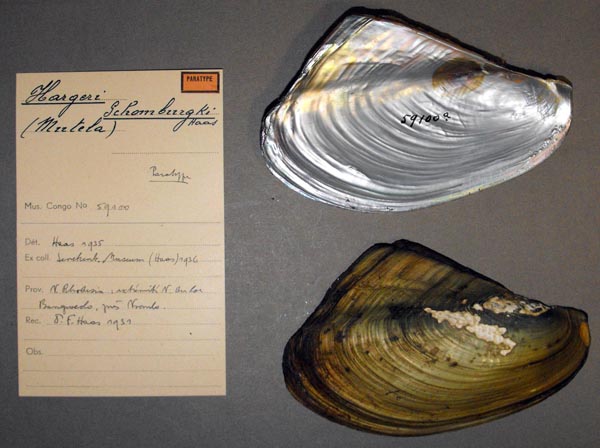 PARATYPE
Hargeri
Schomburgki
(Mutela) Haas
Paratype
Mus. Congo No 59100
Dét. Haas 1935
Ex coll. Senckenb. Museum (Haas) 1936
Prov. N. Rhodesia, extrémité N. du lac
Bangweolo, près
Rec. Dr F. Haas 1931
Obs.
591009